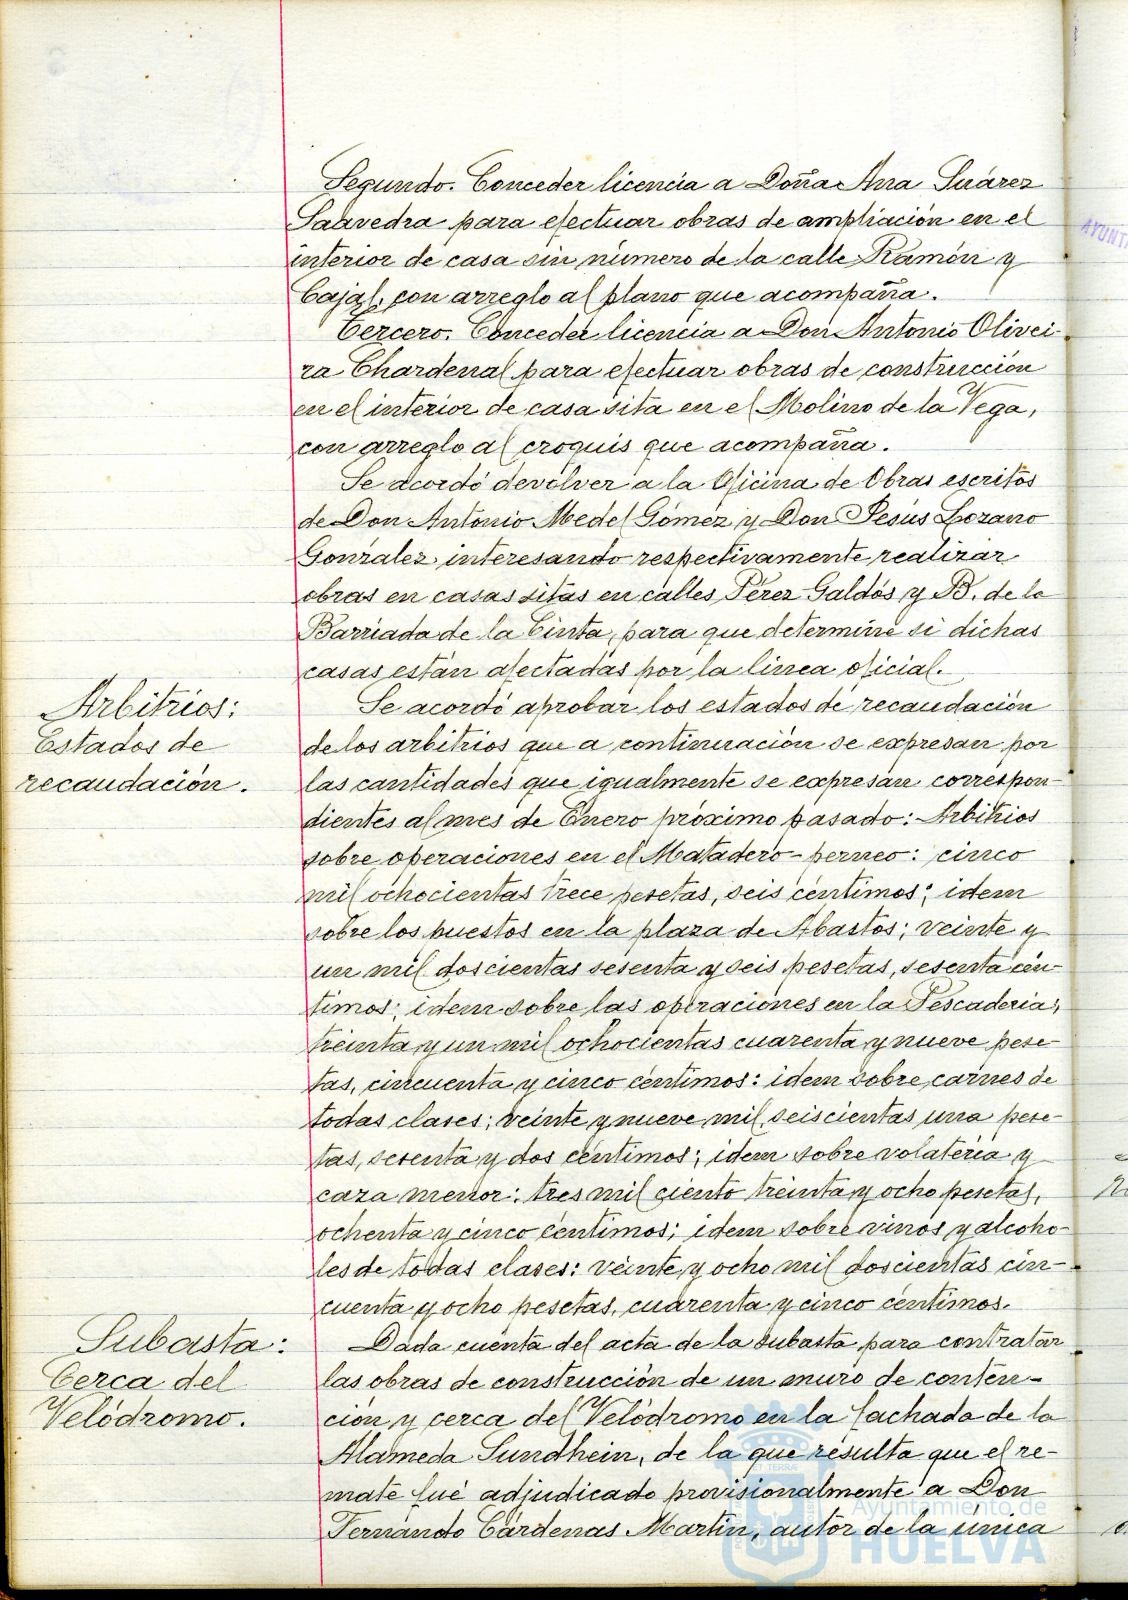 Segundo. Conceder licencia a Doña Ana Suárez
Saavedra para efectuar obras de ampliación en el
interior de casa sin número de la calle Ramón y
Cajal, con arreglo al plano que acompaña.
Tercero. Conceder licencia a Don Antonio Olivei-
ra Chardenal para efectuar obras de construcción
en el interior de casa sita en el Molino de la Vega,
con arreglo al croquis que acompaña.
Se acordó devolver a la Oficina de Obras escritos
de Don Antonio Medel Gómez y Don Jesús Lozano
González interesando respectivamente realizar
obras en casas sitas en calles Pérez Galdós y B. de la
Barriada de la Cinta, para que determine si dichas
casas están afectadas por la línea oficial.
Arbitrios:
Estados de
recaudación.
Se acordó aprobar los estados de recaudación
de los arbitrios que a continuación se expresan por
las cantidades que igualmente se expresan correspon-
dientes al mes de Enero próximo pasado: Arbitrios
sobre operaciones en el Matadero-perneo: cinco
mil ochocientas trece pesetas, seis céntimos; idem
sobre los puestos en la plaza de Abastos; veinte y
un mil doscientas sesenta y seis pesetas, sesenta cén-
timos; idem sobre las operaciones en la Pescadería;
treinta y un mil ochocientas cuarenta y nueve pese-
tas, cincuenta y cinco céntimos: idem sobre carnes de
todas clases; veinte y nueve mil seiscientas una pese-
tas, setenta y dos céntimos; idem sobre volatería y
caza menor; tres mil ciento treinta y ocho pesetas,
ochenta y cinco céntimos; idem sobre vinos y alcoho-
les de todas clases: veinte y ocho mil doscientas cin-
cuenta y ocho pesetas, cuarenta y cinco céntimos.
Subasta:
Cerca del
Velódromo.
Dada cuenta del acta de la subasta para contratar
las obras de construcción de un muro de conten-
ción y cerca del Velódromo en la fachada de la
Alameda Sundhein, de la que resulta que el re-
mate fué adjudicado provisionalmente a Don
Fernando Cárdenas Martín, autor de la única
Ayuntamiento de
HUELVA